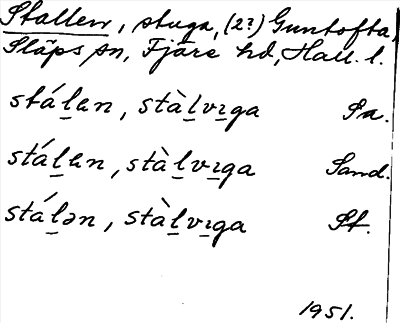 Stallen, stuga, (2?) Guntofta,
Släps sn, Fjäre hd, Hall. l.
stáḻɐn, stàḻvı̱ga Sa.
stáḻɐn, stàḻvı̱ga Sand.
stáḻən, stàḻvı̱ga St.
1951.